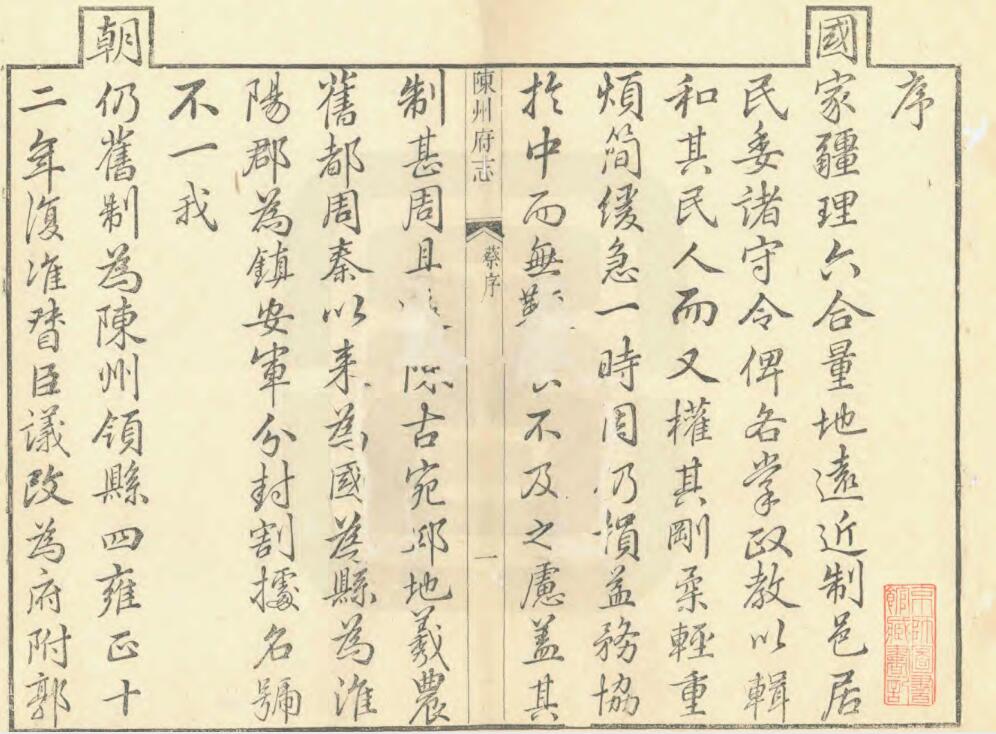 序
國家疆理六合量地遠近制邑居
民委諸守令俾各掌政教以輯
和其民人而又權其剛柔輕重
煩簡緩急一時因乃損益務協
於中而無不及之慮盖其
陳州府志
蔡序
一
制甚周且陳古宛邱地羲農
舊都周秦以来為國為縣為淮
陽郡為鎮安軍分封割據名號
不一我
朝仍舊制為陳州領縣四雍正十
二年復准督臣議改為府附郭
京師圖書館藏書記